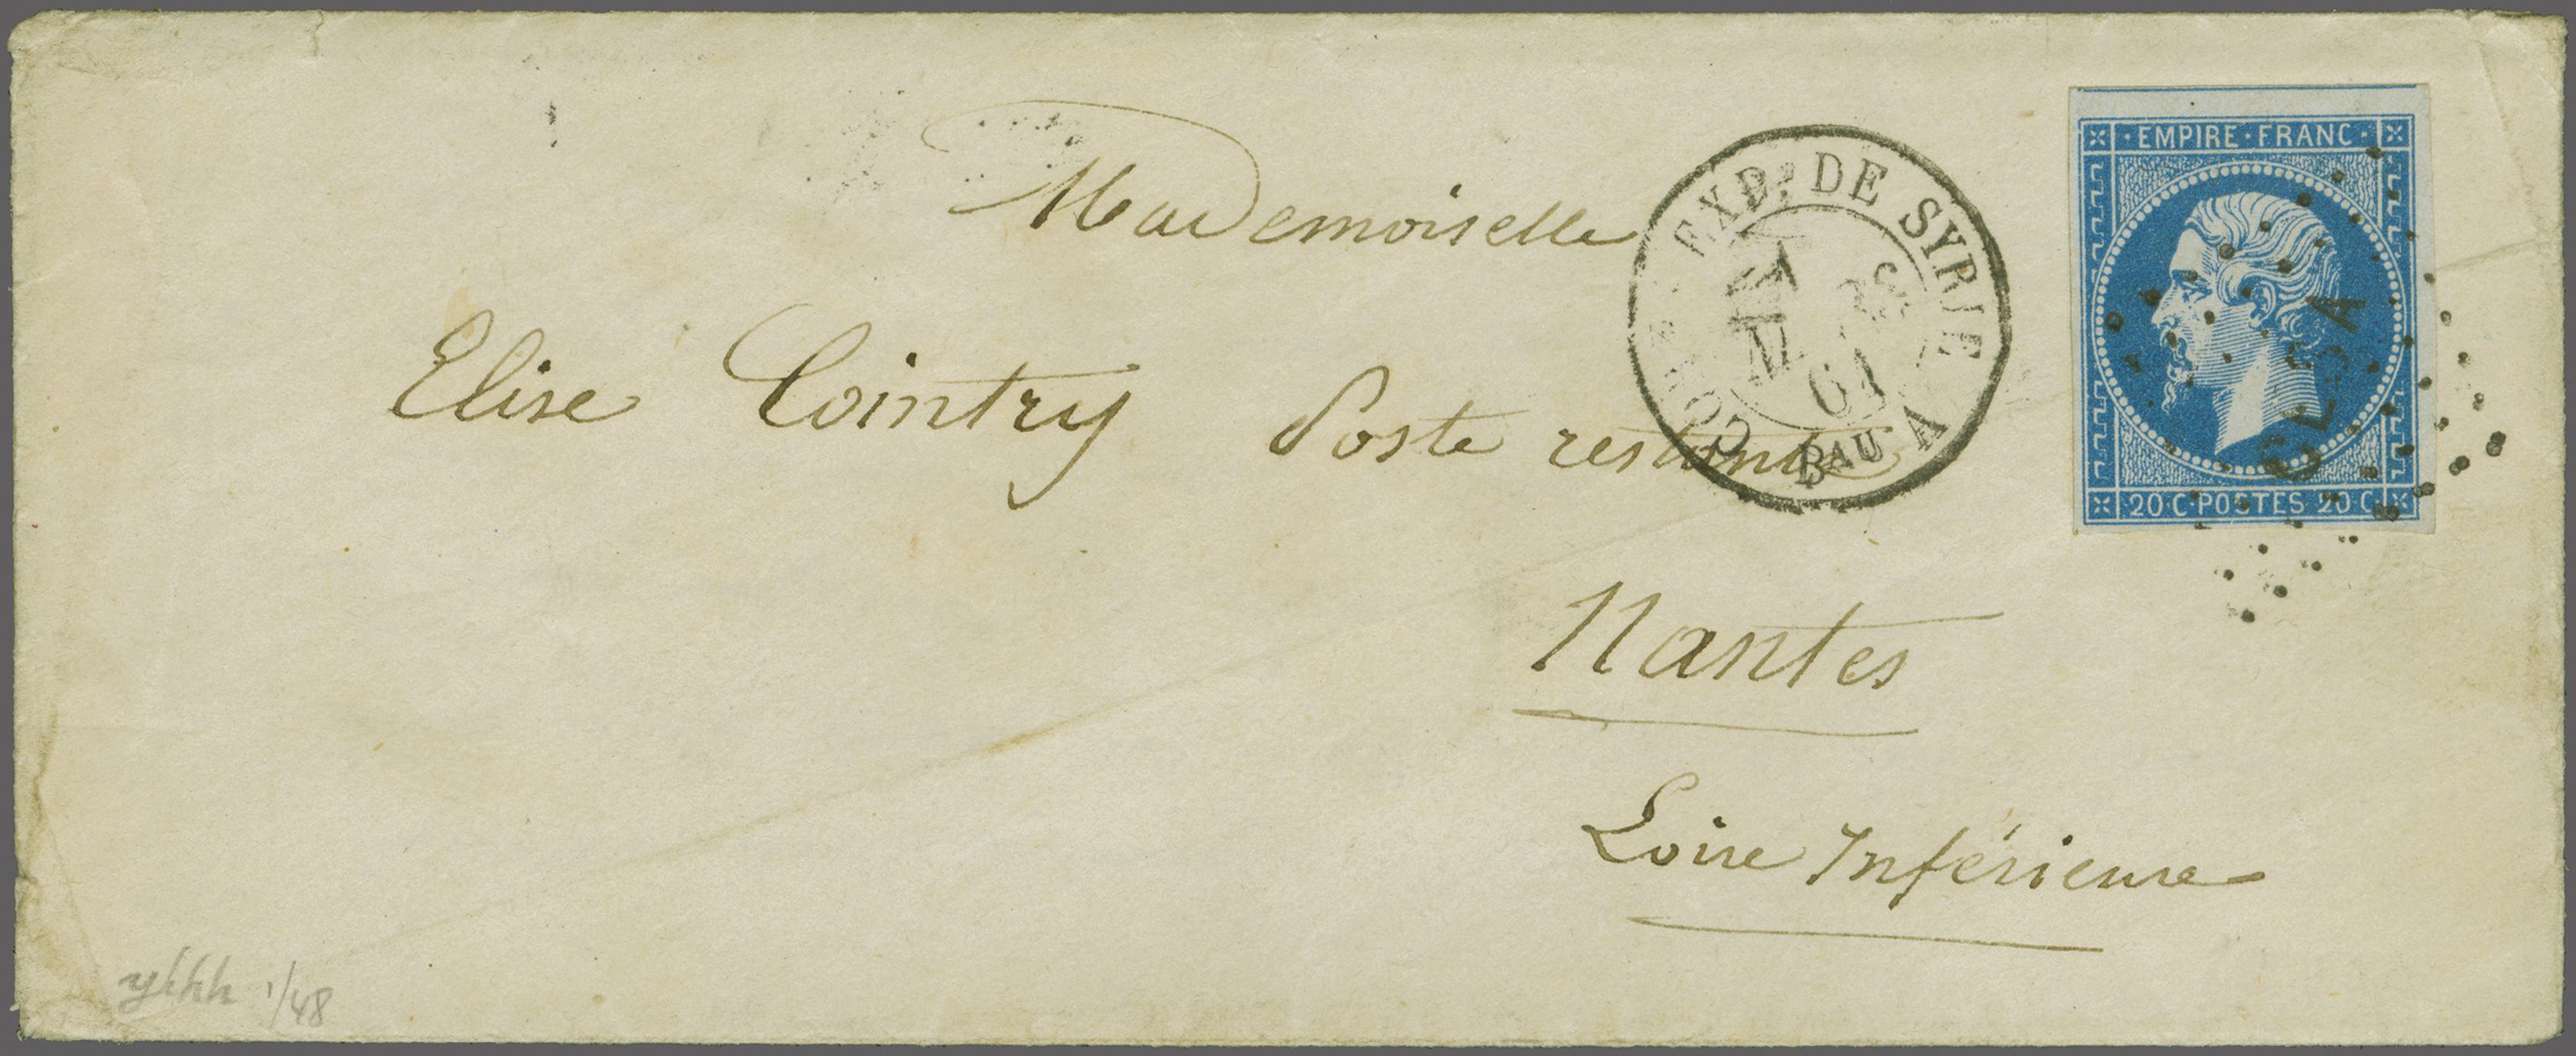 Mademoiselle
Elise Cointry Poste restante
Nantes
Loire Inférieure
EXP. DE SYRIE
61
BAU A
EMPIRE·FRANC·
20·C·POSTES 20·C·
CESA
1/48